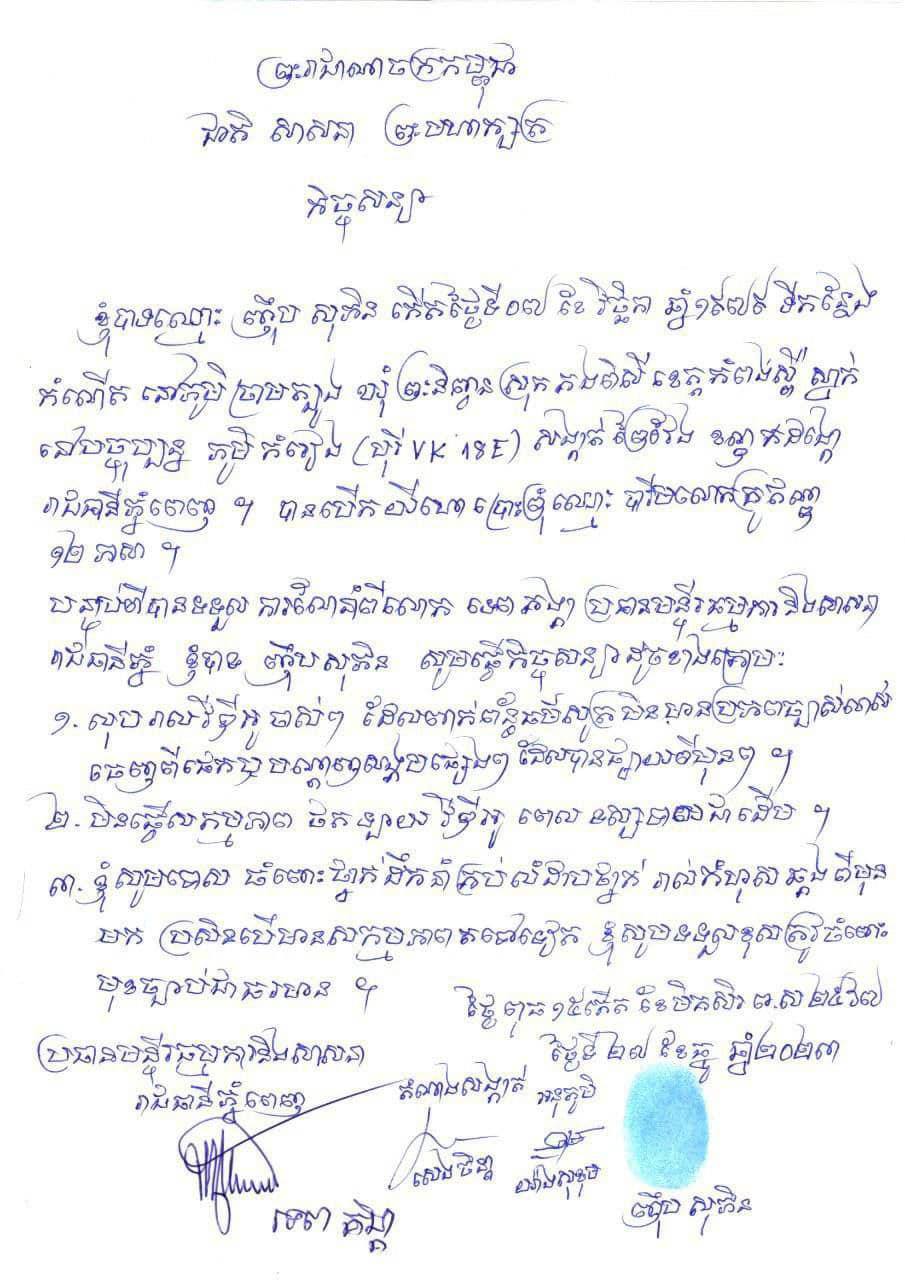 ព្រះរាជាណាចក្រកម្ពុជា
ជាតិ សាសនា ព្រះមហាក្សត្រ
កិច្ចសន្យា
ខ្ញុំបាទឈ្មោះ ញឹប សុភិន កើតថ្ងៃទី០៧ ខែ វិច្ឆិកា ឆ្នាំ១៩៧៩ ទីកន្លែង
កំណើត នៅភូមិ ត្រាមត្បូង ឃុំ ព្រះនិព្វាន ស្រុក គងពិសី ខេត្តកំពង់ស្ពឺ ស្នាក់
នៅបច្ចុប្បន្ន ភូមិ កំរៀង (បុរី VK 18E) សង្កាត់ ព្រៃវែង ខណ្ឌ កំបូល
រាជធានីភ្នំពេញ ។ បានបើក យីហោ ឈ្មោះ បារមីលោកគ្រូ
១២ ភាសា ។
បន្ទាប់ពីបានទទួល ការណែនាំពីលោក ទេព គង្គា ប្រធានមន្ទីរធម្មការ និងសាសនា
រាជធានីភ្នំ ខ្ញុំបាទ ញឹប សុភិន សូមធ្វើកិច្ចសន្យាដូចខាងក្រោម:
១. លុបរាល់វីឌីអូ ចាស់ៗ ដែលពាក់ព័ន្ធធម៌សូត្រ មិនមានប្រភពច្បាស់លាស់
ចេញពីផេក ឬ បណ្ដាញសង្គមផ្សេងៗ ដែលបានផ្សាយពីមុនៗ ។
២. មិនធ្វើសកម្មភាព ថត ផ្សាយ វីឌីអូ ពេល ជាដើម ។
៣. ខ្ញុំសូមទោស ចំពោះថ្នាក់ដឹកនាំគ្រប់លំដាប់ថ្នាក់ រាល់កំហុស ឆ្គង ពីមុន
មក ប្រសិនបើមានសកម្មភាពតទៅទៀត ខ្ញុំសូមទទួលខុសត្រូវចំពោះ
មុខច្បាប់ជាធរមាន ។
ថ្ងៃ ពុធ ១៥កើត ខែមិគសិរ ព.ស ២៥៦៧
ថ្ងៃទី ២៧ ខែធ្នូ ឆ្នាំ២០២៣
ប្រធានមន្ទីរធម្មការនិងសាសនា
រាជធានីភ្នំពេញ
តំណាងសង្កាត់ អនុភូមិ
ទេព គង្គា
ញឹប សុភិន